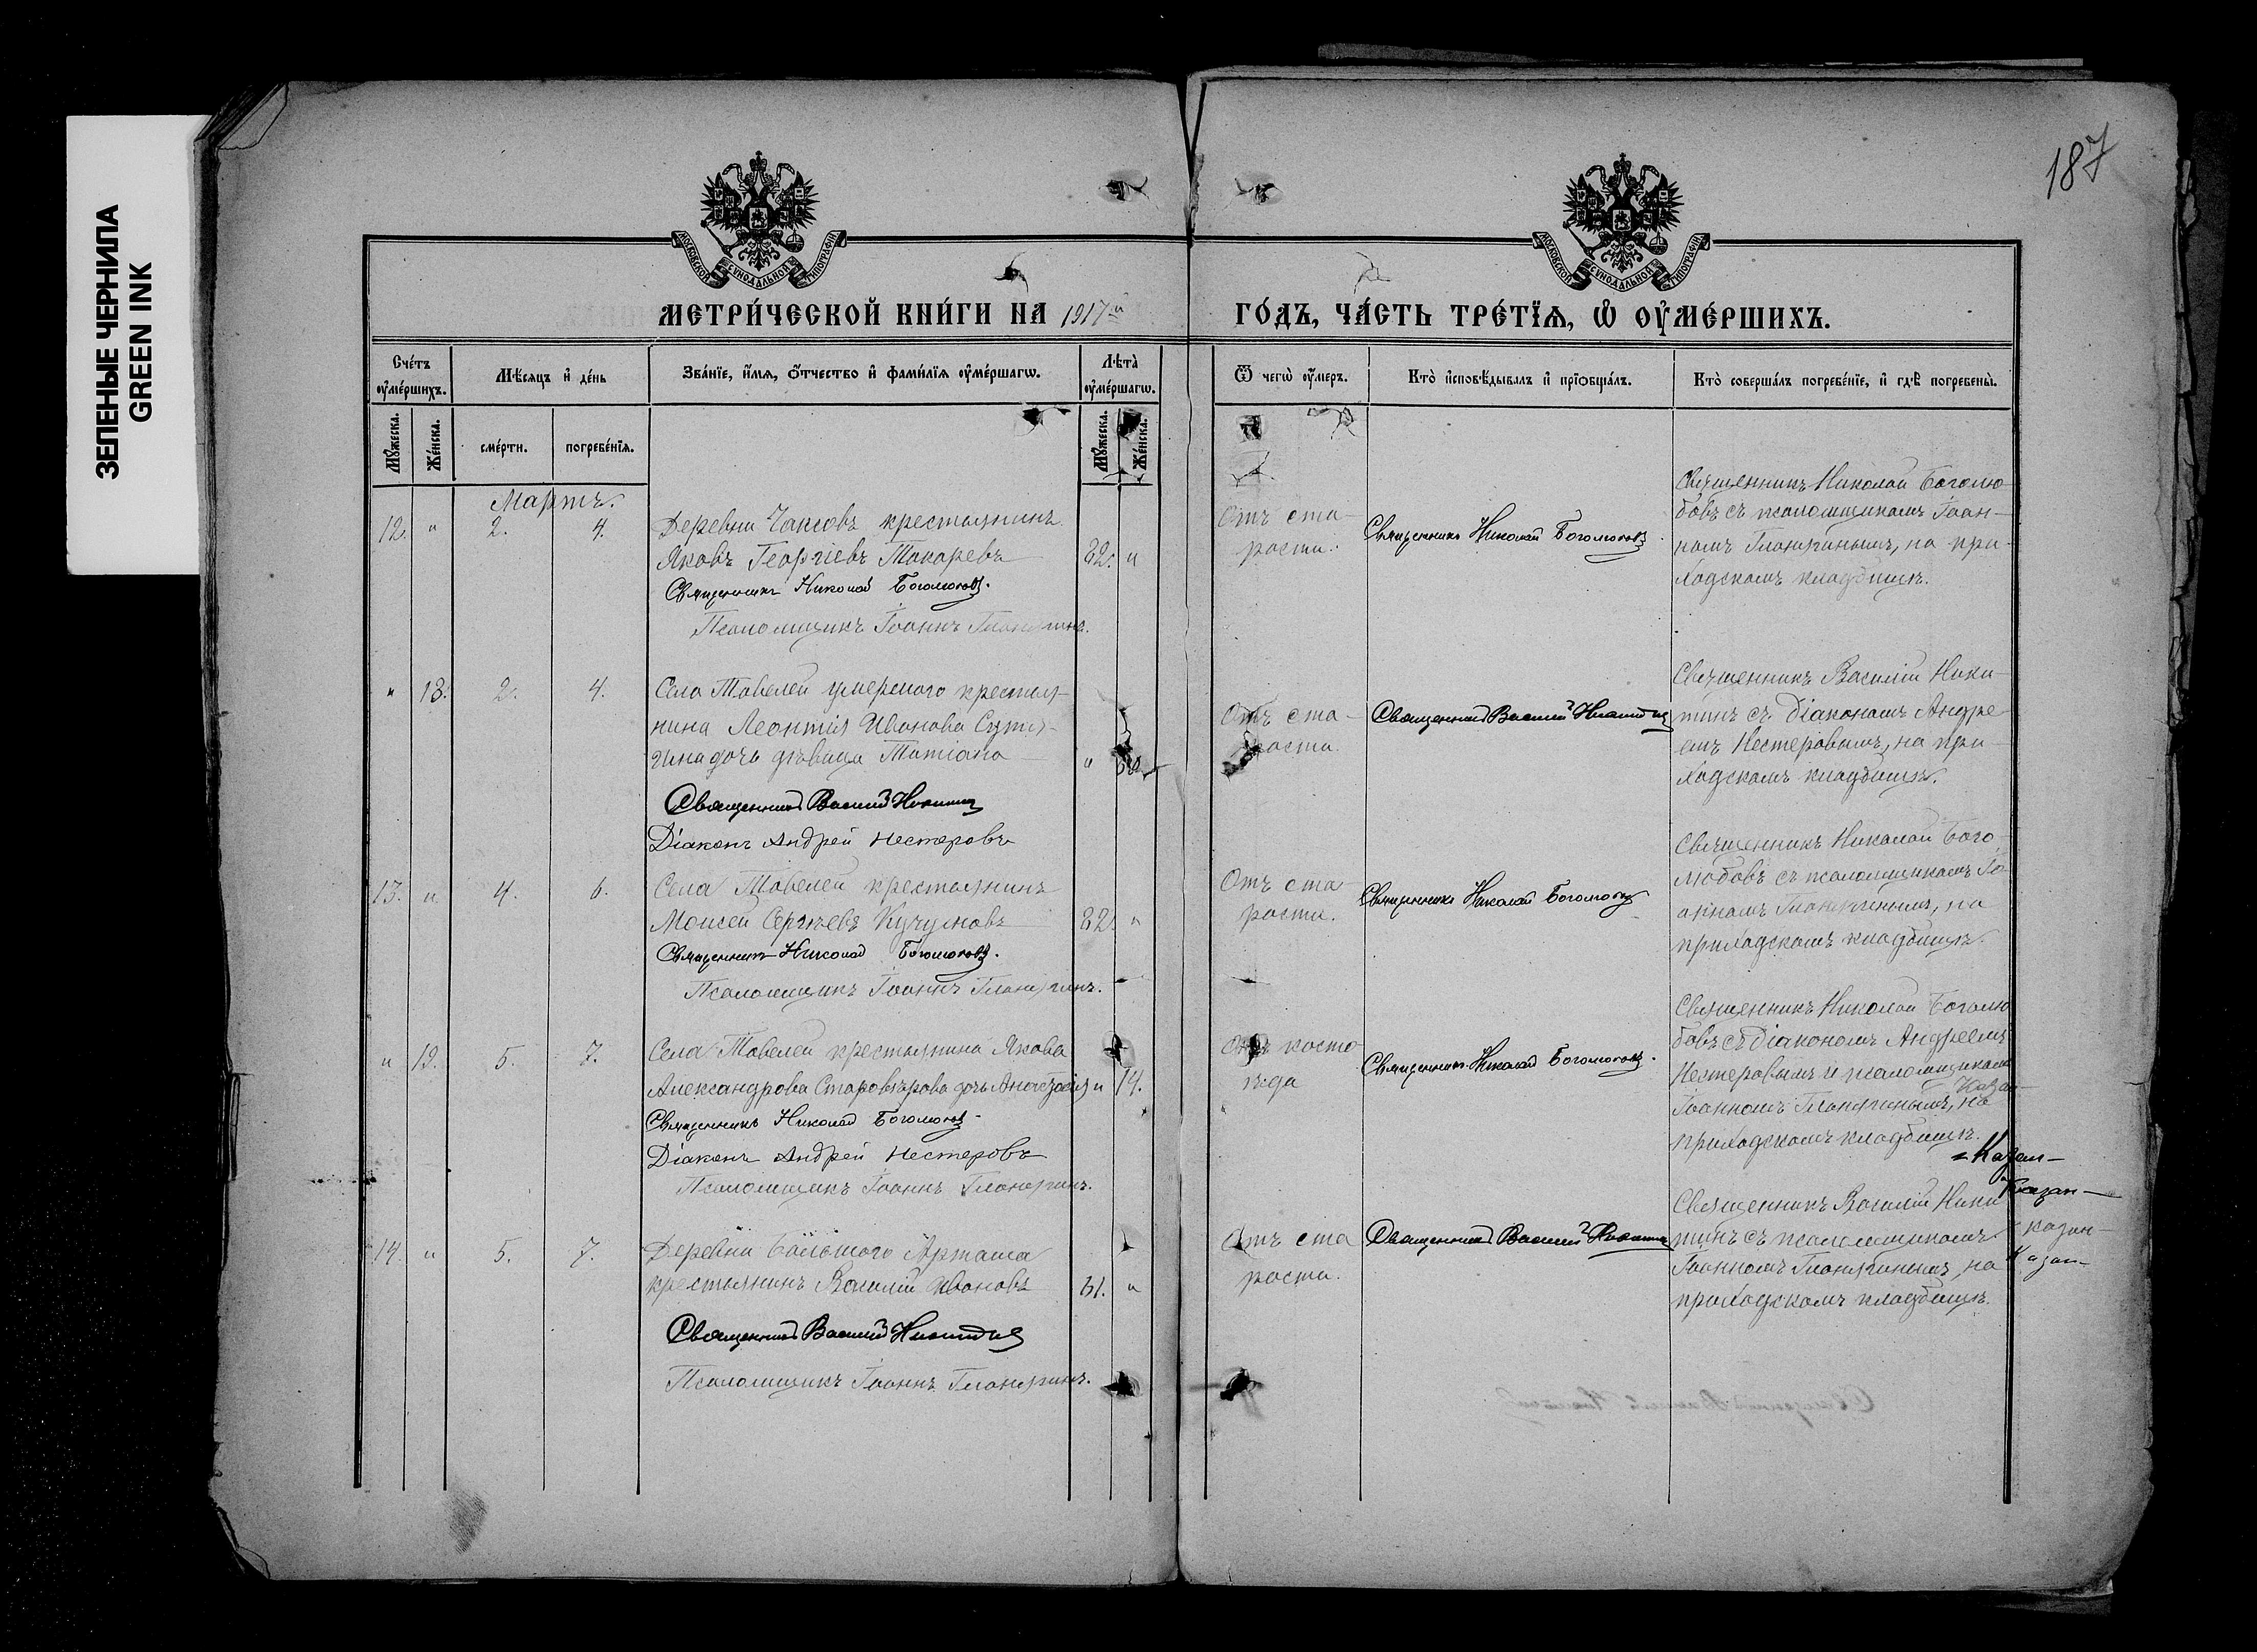 ЗЕЛЕНЫЕ ЧЕРНИЛА
GREEN INK
187
МОСКОВСКОЙ СѴНОДАЛЬНОЙ ТИПОГРАФІИ
МОСКОВСКОЙ СѴНОДАЛЬНОЙ ТИПОГРАФІИ
МЕТРИ́ЧЕСКОЙ КНИ́ГИ НА 1917й
ГО́ДЪ, ЧА́СТЬ ТРЕ́ТЇѦ, Ѡ҆ ОУ҆МЕ́РШИХЪ.
Сче́тъ оу҆ме́ршихъ.
Мѣ́сяцъ и҆ де́нь
Зва́нїе, и҆́мя, ѻ҆́тчество и҆ фами́лїя оу҆ме́ршагѡ.
Лѣта̀ оу҆ме́ршагѡ.
Ѿ чегѡ̀ оу҆́меръ.
Кто̀ и҆сповѣ́дывалъ и҆ прїѻбща́лъ.
Кто̀ соверша́лъ погребе́нїе, и҆ гдѣ̀ погребены̀.
Мꙋ́жеска.
Же́нска.
сме́рти.
погребе́нїя.
Мꙋ́жеска.
Же́нска.
Мартъ.
12. " 2. 4.
Деревни Чаксовъ крестьянинъ
Яковъ Георгіевъ Токаревъ 82. "
Священникъ Николай Боголюбовъ.
Псаломщикъ Іоаннъ
Отъ ста-
рости.
Священникъ Николай Боголюбовъ
Священникъ Николай Боголю-
бовъ съ псаломщикомъ Іоан-
номъ на при-
ходскомъ кладбищѣ.
" 18. 2. 4.
Села Тавелей умершого крестья-
нина Леонтія Иванова Сутя-
гина дочь дѣвица Татіана "
Священникъ Василій Никитинъ
Діаконъ Андрей Нестеровъ
Отъ ста-
рости.
Священникъ Василій Никитинъ
Священникъ Василій Ники-
тинъ съ діакономъ Андре-
емъ Нестеровымъ, на при-
ходскомъ кладбищѣ.
13. " 4. 6.
Села Тавелей крестьянинъ
Моисей Сергѣевъ Кучумовъ 82. "
Священникъ Николай Боголюбовъ.
Псаломщикъ Іоаннъ
Отъ ста-
рости.
Священникъ Николай Боголюбовъ
Священникъ Николай Бого-
любовъ съ псаломщикомъ Іо-
анномъ на
приходскомъ кладбищѣ.
" 19. 5. 7.
Села Тавелей крестьянина Якова
Александрова Старовѣрова дочь Анастасія " 14.
Священникъ Николай Боголюбовъ
Діаконъ Андрей Нестеровъ
Псаломщикъ Іоаннъ
Отъ косто-
ѣда
Священникъ Николай Боголюбовъ.
Священникъ Николай Боголю-
бовъ съ діакономъ Андреемъ
Нестеровымъ и псаломщикомъ
Іоанномъ на
приходскомъ кладбищѣ.
Казан-
Казан-
казан-
Казан-
14. " 5. 7.
Деревни Большого Арташа
крестьянинъ Василій Ивановъ 61. "
Священникъ Василій Никитинъ
Псаломщикъ Іоаннъ
Отъ ста-
рости.
Священникъ Василій Никитинъ
Священникъ Василій Ники-
тинъ съ псаломщикомъ
Іоанномъ на
приходскомъ кладбищѣ.